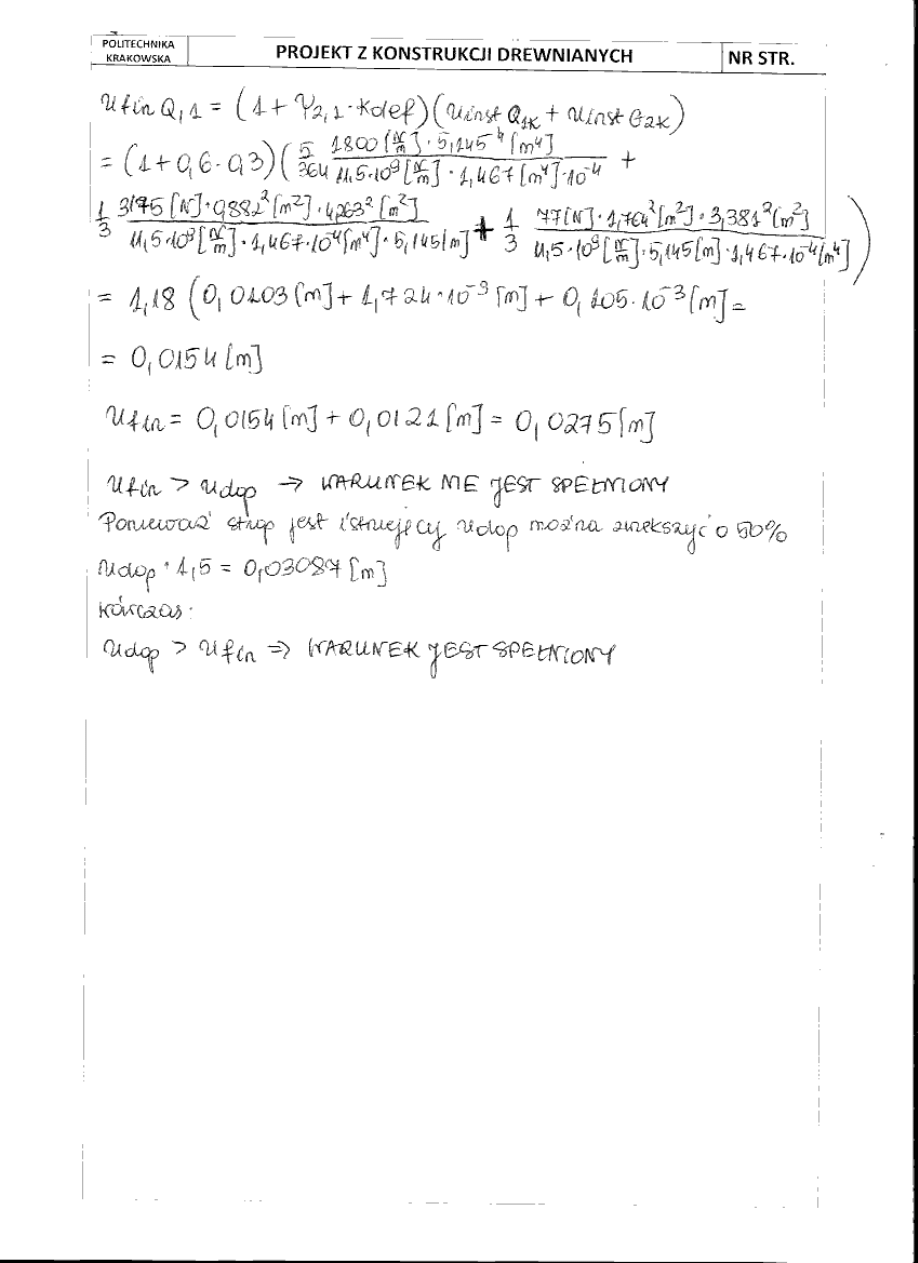 POLITECHNIKA
KRAKOWSKA
PROJEKT Z KONSTRUKCJI DREWNIANYCH
NR STR.
Ufin Q,1 = (1 + Ψ2,1 · Kdef) (Uinst Q1K + Uinst Q2K)
= (1 + 0,6 · 0,3) ( 5/364 1800 [N/m] · 5,145⁴ [m⁴] / 11,5·10⁹ [N/m] · 1,467 [m⁴]·10⁻⁴ +
1/3 3175 [N] · 0,882² [m²] · 4,263² [m²] / 11,5·10⁹ [N/m] · 1,467·10⁻⁴ [m⁴] · 5,145 [m] + 1/3 77 [N] · 1,764² [m²] · 3,381² [m²] / 11,5·10⁹ [N/m] · 5,145 [m] · 1,467·10⁻⁴ [m⁴] )
= 1,18 (0,0103 [m] + 1,724·10⁻³ [m] + 0,105·10⁻³ [m] =
= 0,0154 [m]
Ufin = 0,0154 [m] + 0,0121 [m] = 0,0275 [m]
Ufin > Udop → WARUNEK NIE JEST SPEŁNIONY
Ponieważ strop jest istniejący Udop można zwiększyć o 50%
Udop · 1,5 = 0,03087 [m]
wówczas:
Udop > Ufin ⇒ WARUNEK JEST SPEŁNIONY